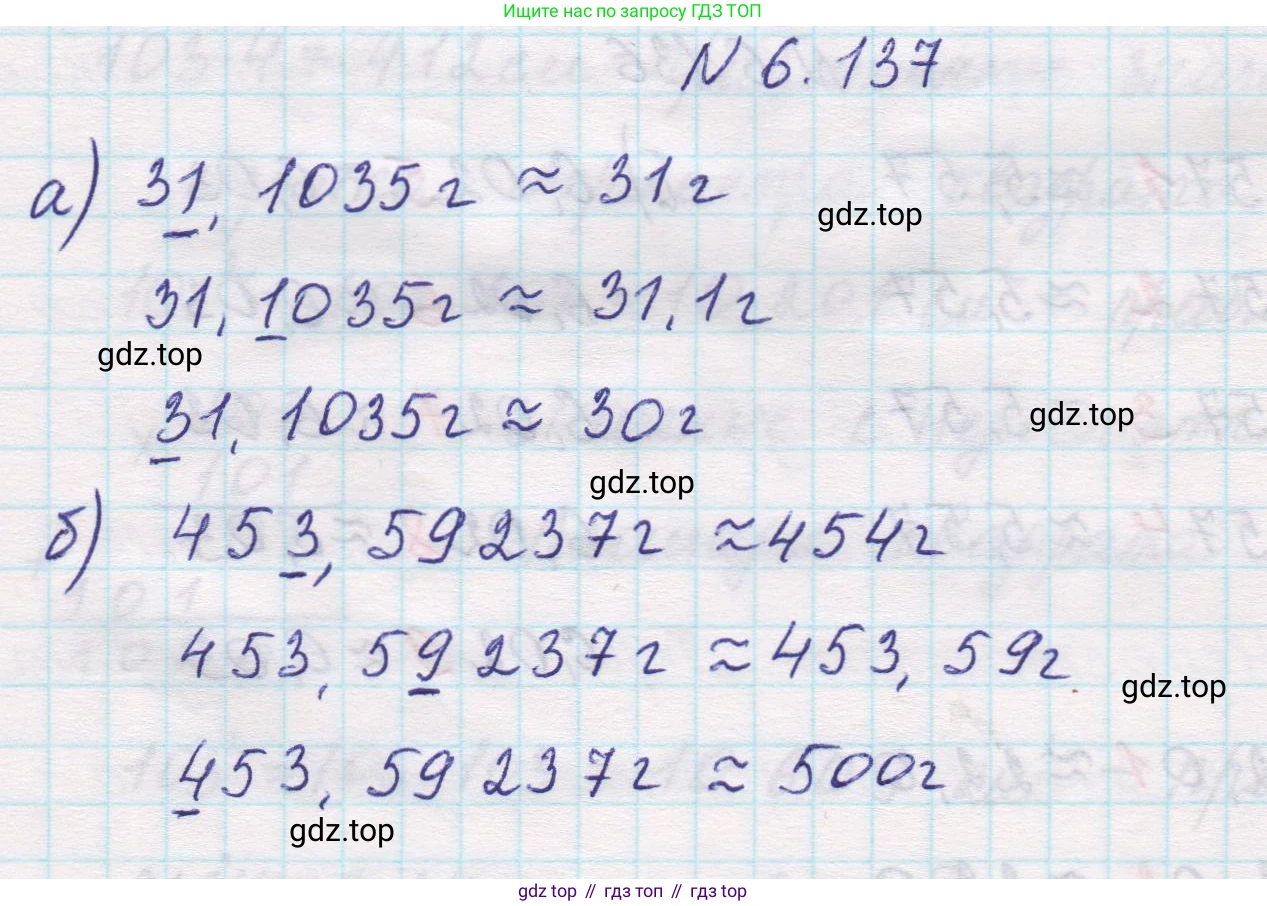 Ищите нас по запросу ГДЗ ТОП
N 6.137
а) 31,1035г ≈ 31г
gdz.top
31,1035г ≈ 31,1г
gdz.top
31,1035г ≈ 30г
gdz.top
gdz.top
б) 453,59237г ≈ 454г
453,59237г ≈ 453,59г
gdz.top
453,59237г ≈ 500г
gdz.top
gdz top // гдз топ // gdz top